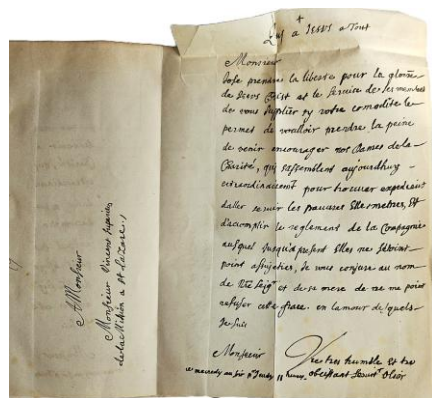 +
a Jesus a Tout
Monsieur
J'ose prendre la liberté pour la gloire
de Jesus Christ et le service de ses membres
de vous suplier sy votre comodité le
permet de vouloir prendre la peine
de venir encourager nos Dames de la
Charité, qui s'assemblent aujourdhuy
extraordinairement pour trouver expedient
daller servir les pauvres Elles mesmes, Et
d'acomplir le reglement de la Compagnie
auquel jusqu'a present Elles ne se sont
point assujeties, Je vous conjure au nom
de Ntre Seigr et de sa mere de ne me point
refuser cette grace. en lamour desquels
Je suis
Monsieur
Vre tres humble et tres
ce mercredy au soir pr Jeudy 11 heures obeissant servitr Olier
A Monsieur
Monsieur Vincent
de la Mission a St Lazare